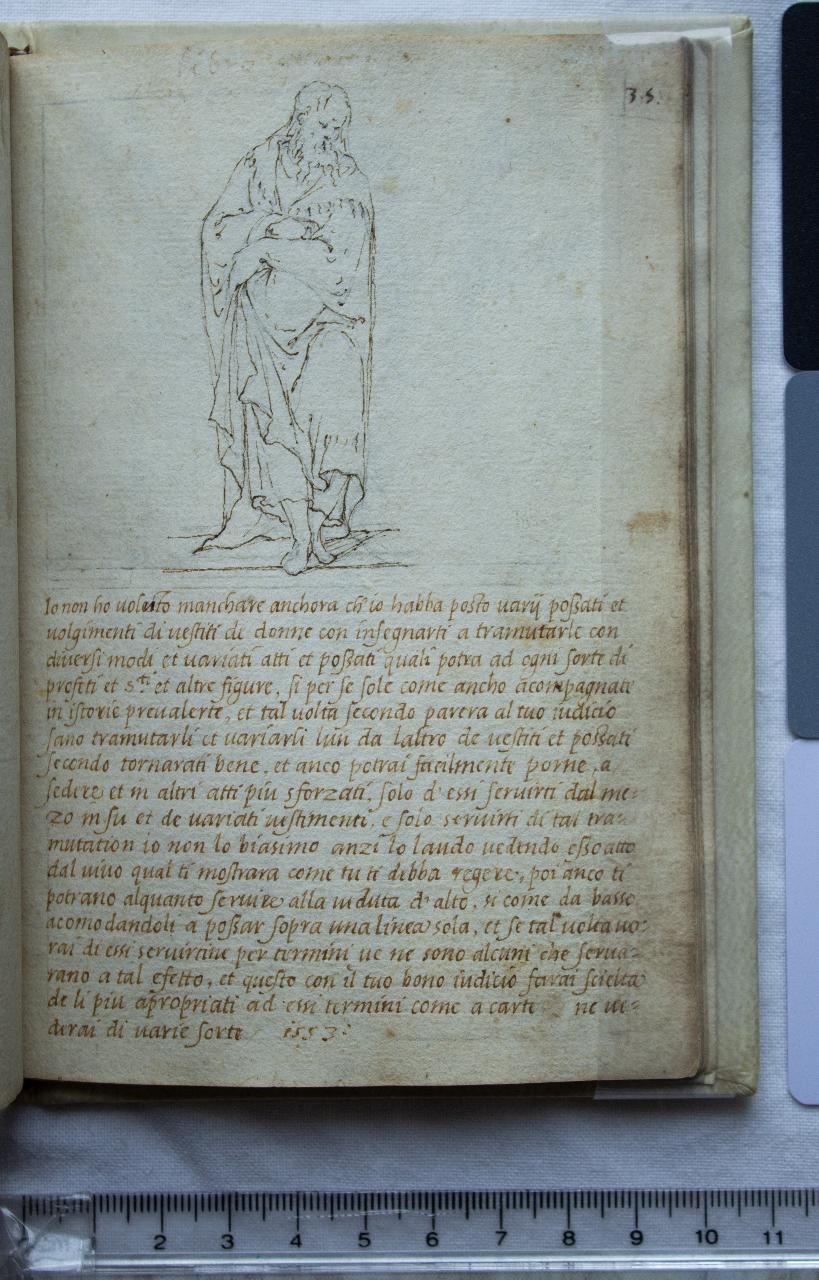 35.
Io non ho voluto manchare anchora ch'io habba posto varij poßati et
volgimenti di vestiti di donne con insegnarti a tramutarle con
diversi modi et variati atti et poßati quali potra ad ogni sorte di
profeti et s.ti et altre figure, si per se sole come ancho acompagnate
in istorie prevalerte, et tal volta secondo parera al tuo iudicio
sano tramutarli et variarli lun da laltro de vestiti et poßati
secondo tornarati bene, et anco potrai facilmente porne a
sedere et in altri atti più sforzati, solo d'essi servirti dal me-
zo in su et de variati vestimenti, e solo servirti di tal tra-
mutation io non lo biasimo anzi lo laudo vedendo eßo atto
dal vivo qual ti mostrara come tu ti debba regere, poi anco ti
potrano alquanto servire alla veduta d'alto, si come da basso
acomodandoli a poßar sopra una linea sola, et se tal volta vo-
rai di essi servirtine per termini ve ne sono alcuni che serva-
rano a tal efetto, et questo con il tuo bono iudicio farai scielta
de li più apropriati ad essi termini come a carte ne ve-
derai di varie sorte 1553:
2 3 4 5 6 7 8 9 10 11